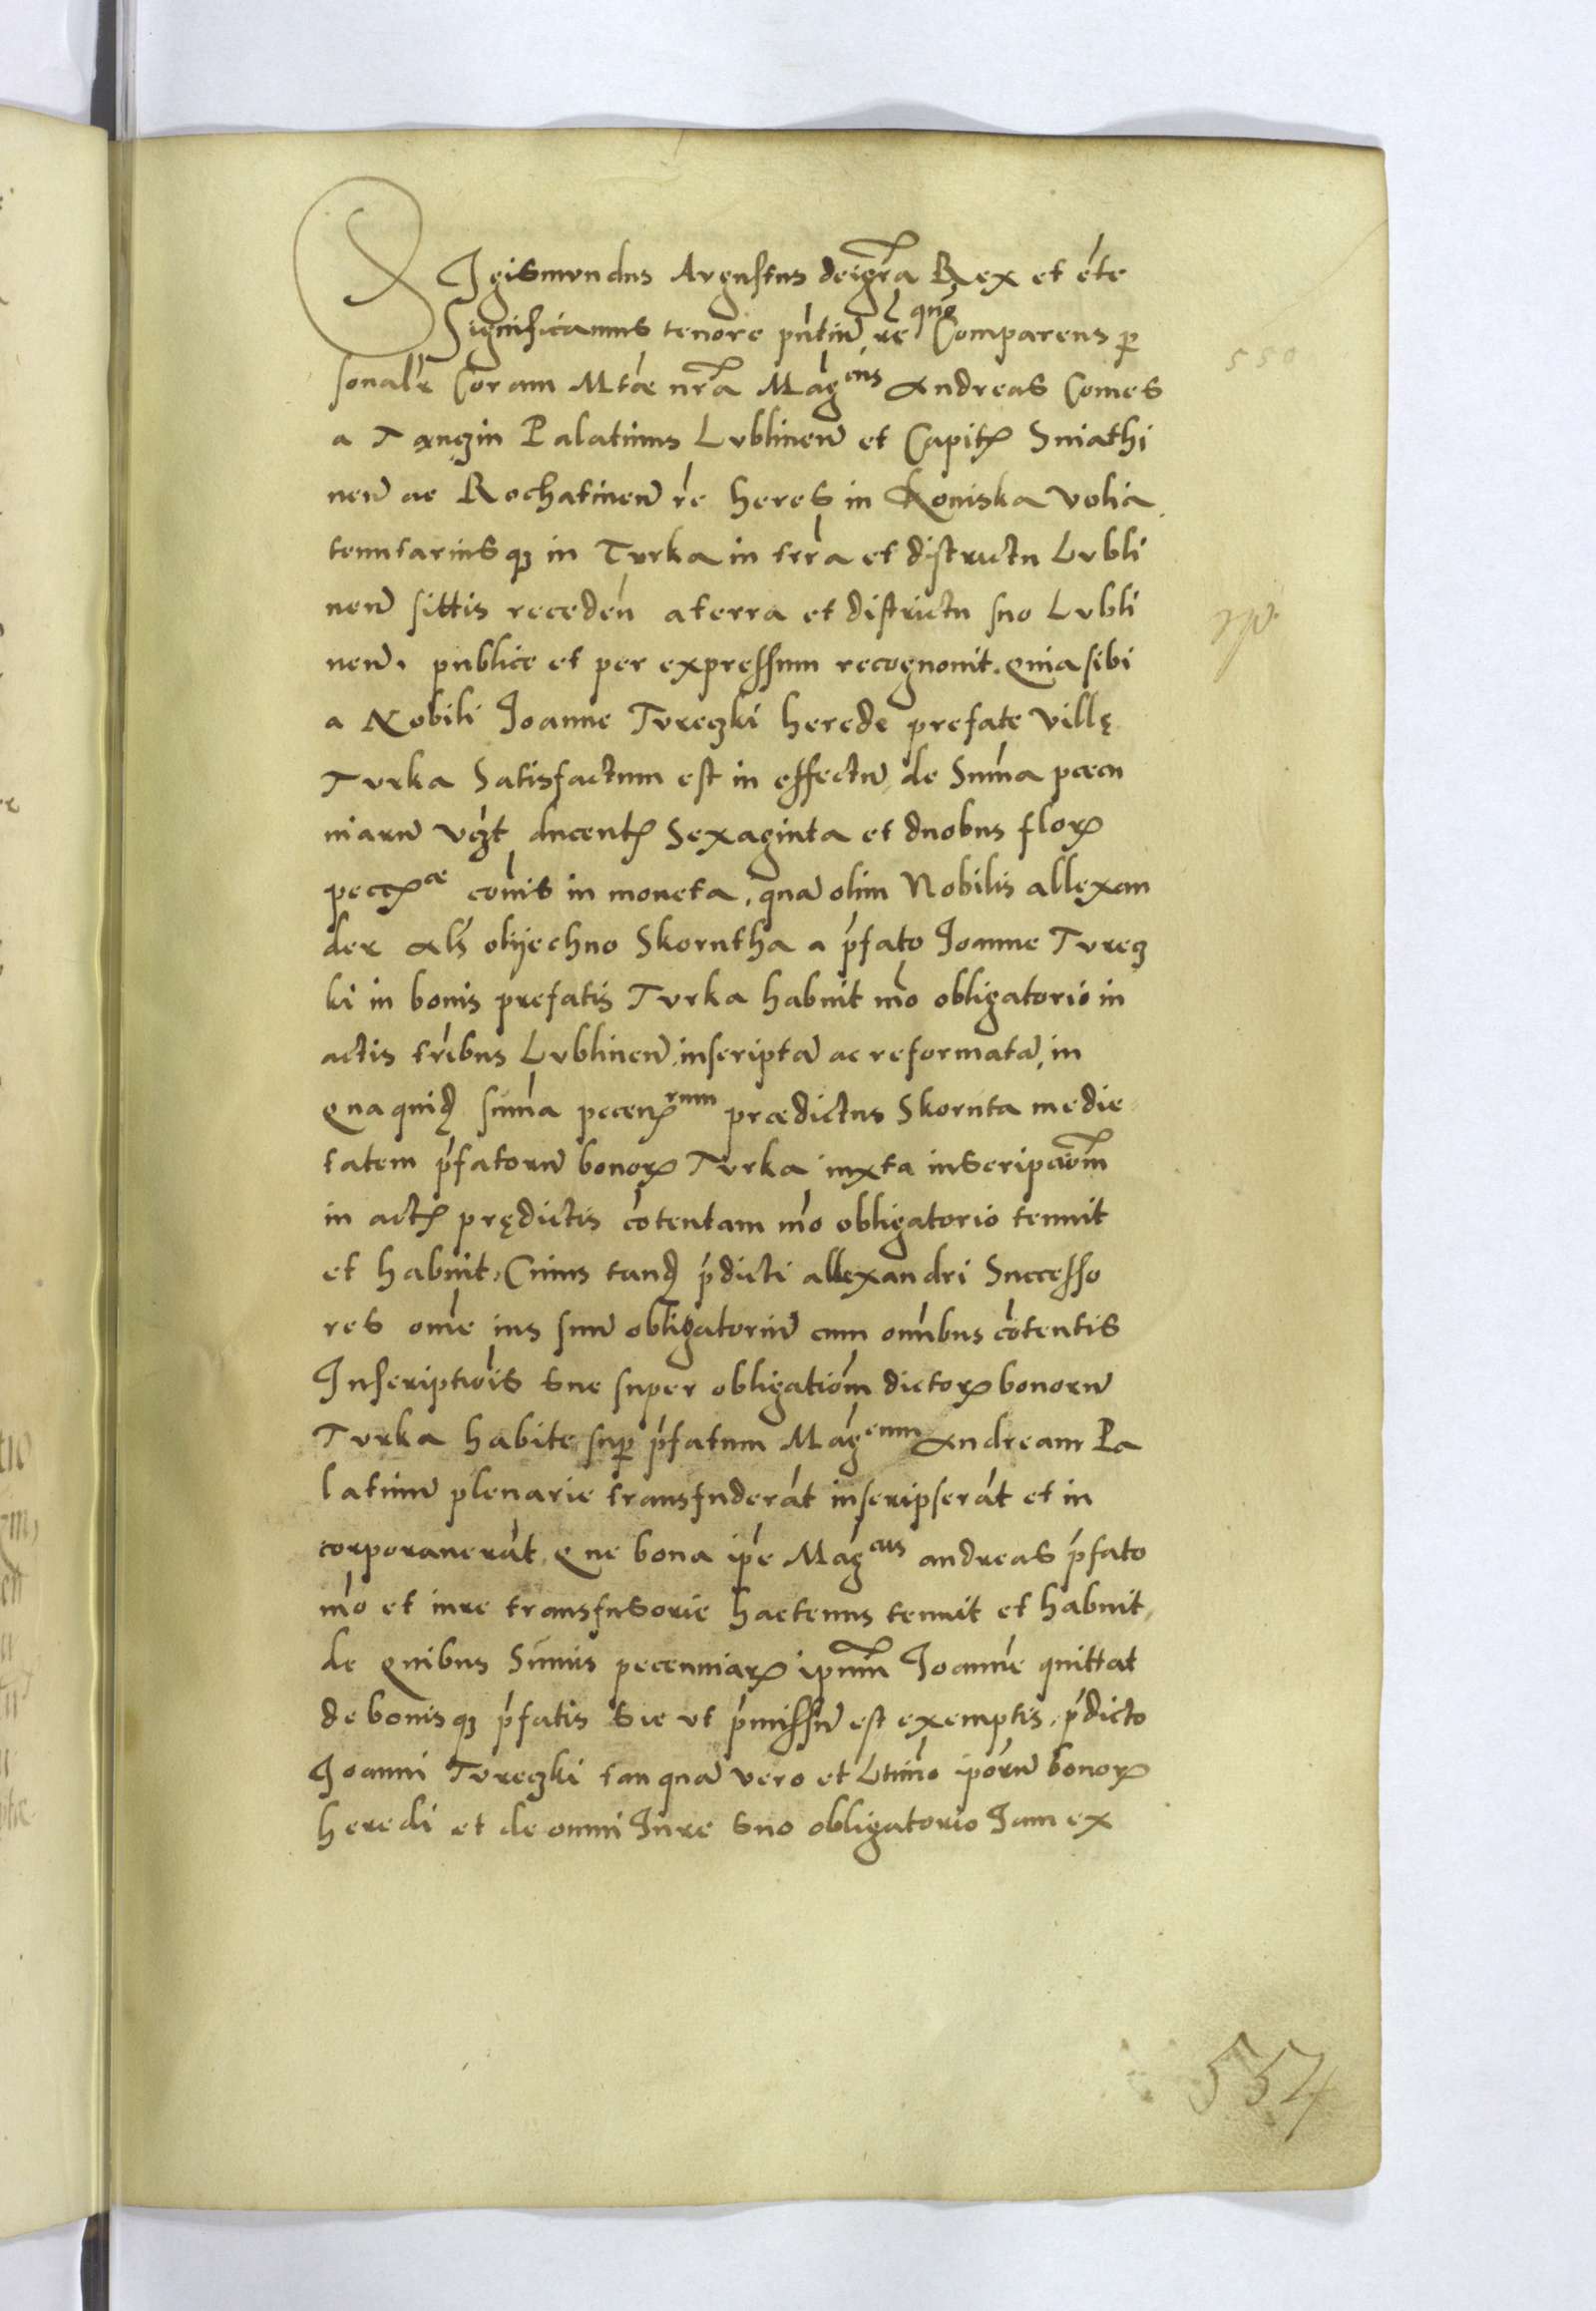 SIgismundus Augustus dei gr̃a Rex et c̃te
Significamus tenore pñtiũ rẽ quõ Comparens ꝑ
sonalr̃ Coram Mtã̃e nr̃a Mag̃cus Andreas Comes
a Tanczin Palatinus Lublineñ et Capitꝭ Sniathi
neñ ac Rochatineñ rẽ heres in Koniska volia
tenutariusqꝫ in Turka in trr̃a et districtu Lubli
neñ sittis recedeñ a terra et districtu suo Lubli
neñ. publice et per expressum recognouit. Quia sibi
a Nobili Joanne Tureczki herede prefate villę
Turka Satisfactum est in effectũ de Sum̃a pecu
niarũ vcz̃t ducentꝭ Sexaginta et duobus florꝝ
pecꝝe cõnis in moneta, quã olim Nobilis allexan
der Als̃ olijechno Skorutha a p̃fato Joanne Turecz
ki in bonis prefatis Turka habuit mõ obligatorio in
actis trr̃ibus Lublineñ inscriptã ac reformatã, in
Quaquidꝫ sum̃a pecenꝝrum prædictus Skoruta medie
tatem p̃fatorũ bonoꝝ Turka iuxta inscripcionẽm
in actꝭ prędictis cõtentam mõ obligatorio tenuit
et habuit, Cuius tandꝫ p̃dicti allexandri Successo
res om̃e ius suũ obligatoriũ cum om̃ibus cõtentis
Inscriptiõis sue super obligatiõm dictoꝝ bonorũ
Turka habite suꝑ p̃fatum Mag̃cum Andream Pa
latinũ plenarie transfuderãt inscripserãt et in
corporauerãt, Que bona ip̃e Mag̃cus andreas p̃fato
mõ et iure transfusorie hactenus tenuit et habuit,
de quibus Sum̃is pecenniaꝝ ipsum̃ Joannẽ quittat
de bonisqꝫ p̃fatis sic vt p̃missũ est exemptis, p̃dicto
Joanni Tureczki tanquã vero et Ltim̃o ip̃orũ bonoꝝ
heredi et de omni Jure suo obligatorio Jam ex
550
554